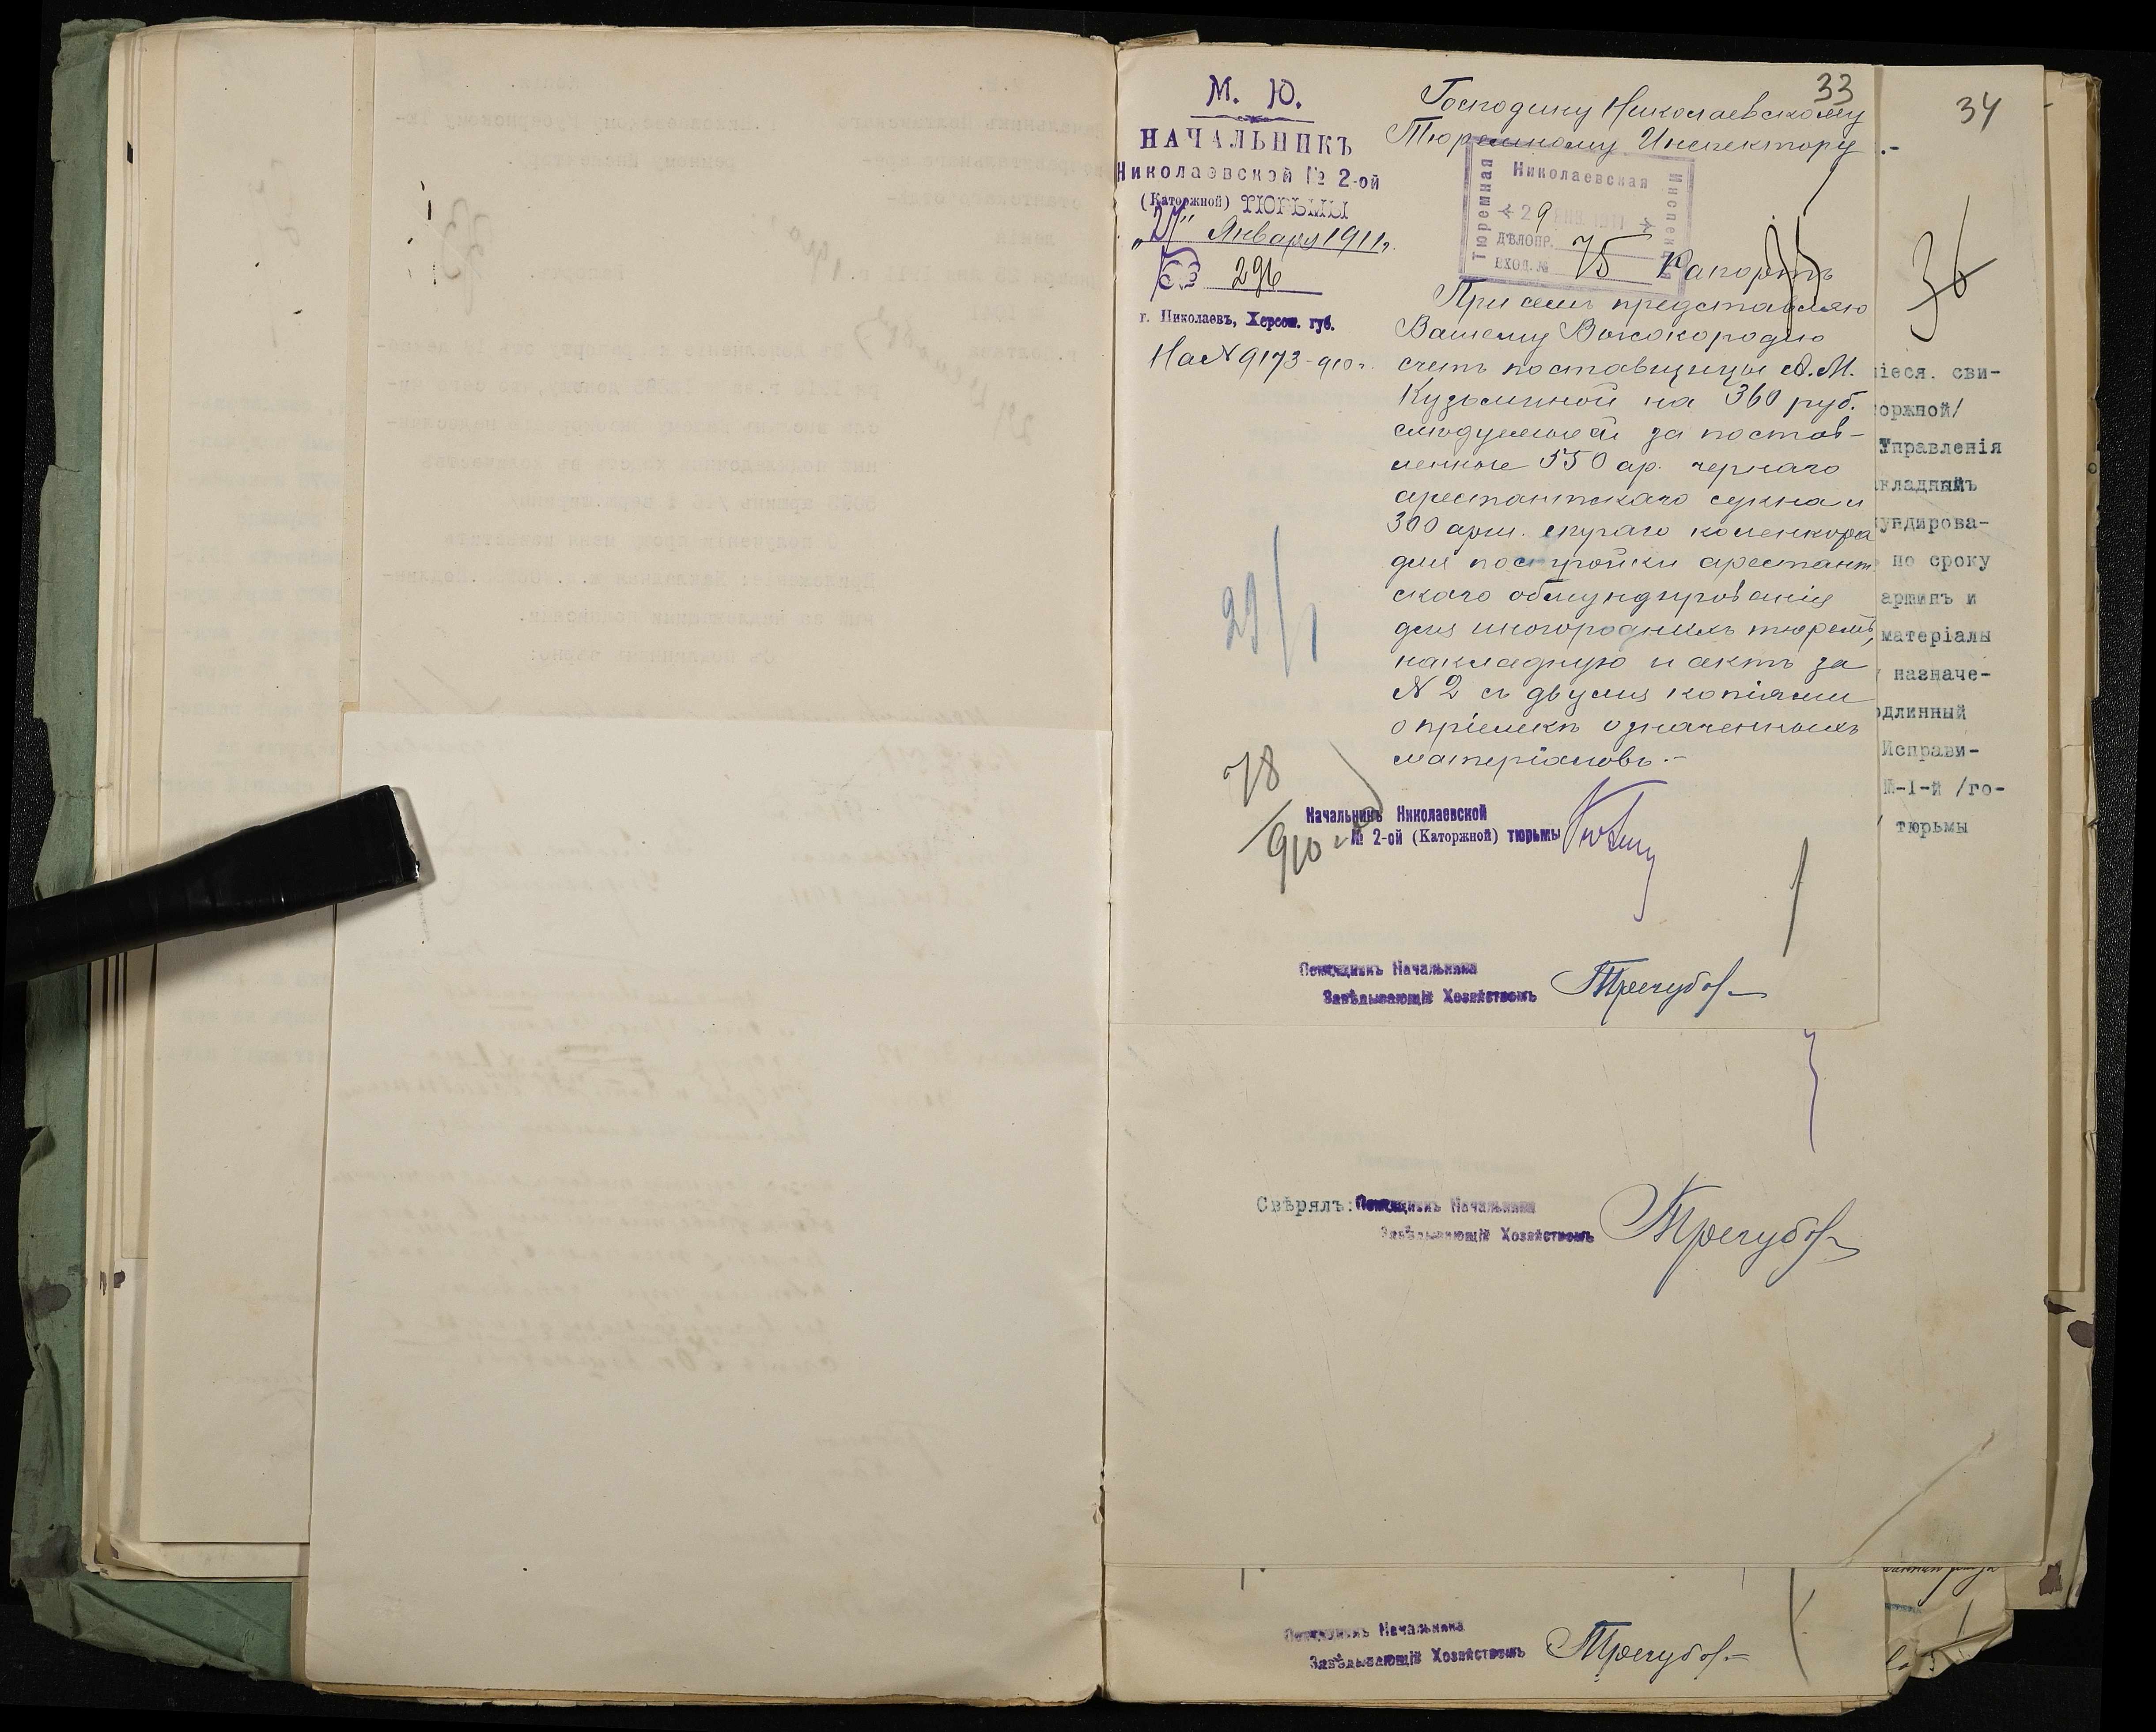 33
34
М. Ю.
НАЧАЛЬНИКЪ
Николаевской № 2-ой
(Каторжной) ТЮРЬМЫ
„27" Января 1911 г.
№ 296
г. Николаевъ, Херсон. губ.
На № 9173-910 г.
Господину Николаевскому
Тюремному Инспектору
Тюремная
Николаевская
Инспекція
29 ЯНВ. 1911
ДѢЛОПР.
ВХОД. № 75
Рапортъ
При семъ представляю
Вашему Высокородию
счетъ поставщицы М.
Кузьминой на 360 руб.
следуемые ей за постав-
ленные 550 ар. чернаго
арестантскаго сукна и
300 арш. сѣраго коленкора
для постройки арестант-
скаго обмундированія
для иногороднихъ тюремъ,
накладную и актъ за
№ 2 съ двумя копіями
о пріемкѣ означенныхъ
матеріаловъ.-
29/1
78
910 г.
Начальникъ Николаевской
№ 2-ой (Каторжной) тюрьмы
Помощникъ Начальника
Завѣдывающій Хозяйствомъ Трегубов
36
іеся. сви-
оржной/
Управленія
кладный
ундирова-
по сроку
аршинъ и
матеріалы
назначе-
одлинный
Исправи-
№-I-й /го-
тюрьмы
Свѣрялъ: Помощникъ Начальника
Завѣдывающій Хозяйствомъ Трегубов
Помощникъ Начальника
Завѣдывающій Хозяйствомъ Трегубов